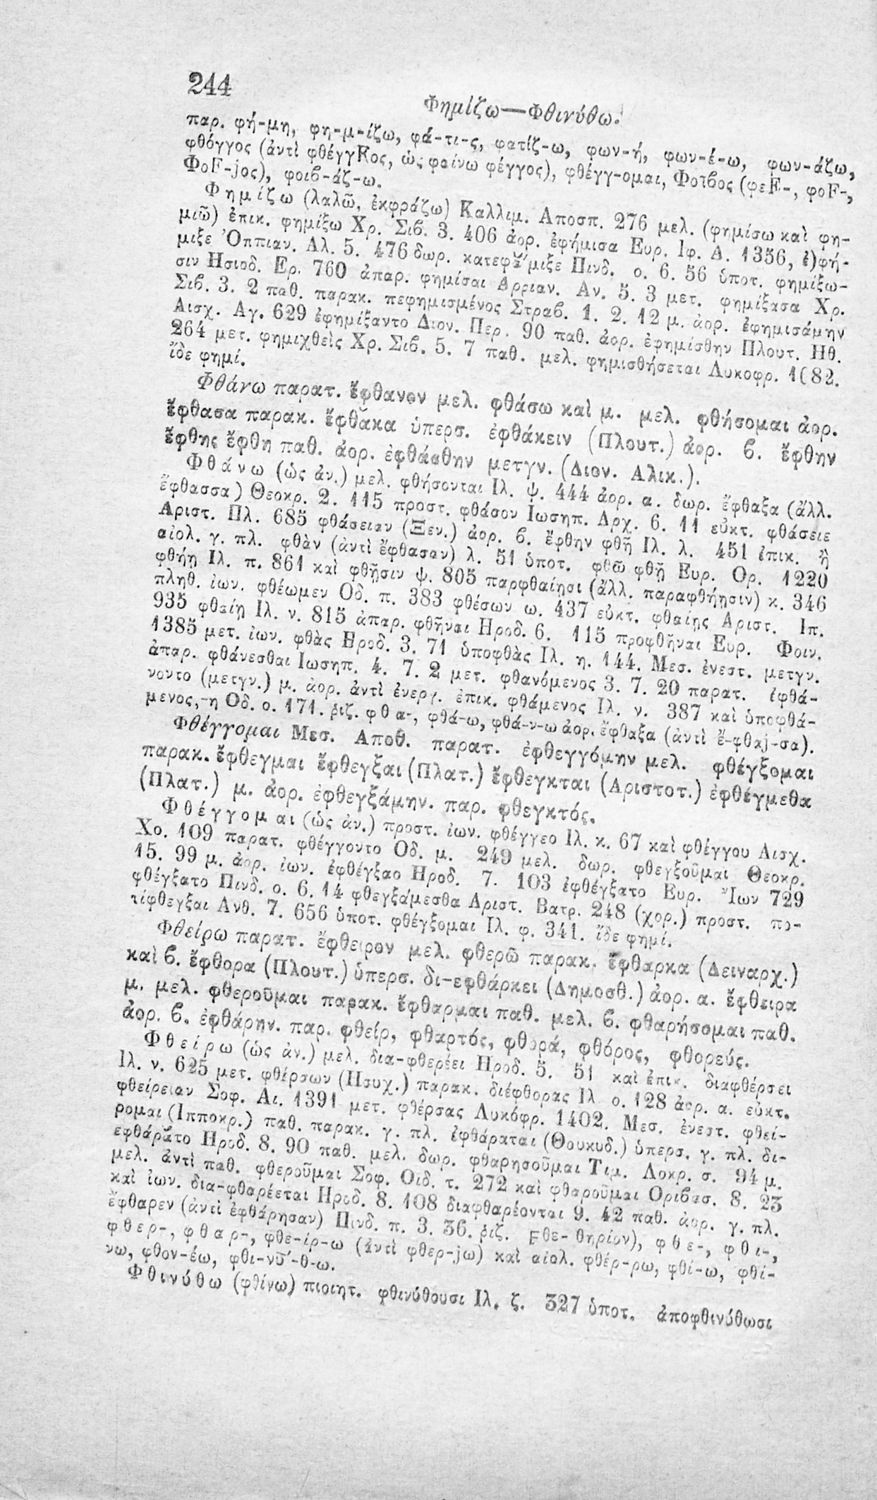 244
Φημίζω—Φθινύθω.
παρ. φή-μη, φη-μ-ίζω, φά-τι-ς, φατίζ-ω, φων-ή, φων-έ-ω, φων-άζω,
φθόγγος (ἀντὶ φθέγγΚος, ὡς φαίνω φέγγος), φθέγγ-ομαι, Φοῖβος (φεF-, φοF-,
ΦοF-jος), φοιβ-άζ-ω.
Φημίζω (λαλῶ, ἐκφράζω) Καλλιμ. Αποσπ. 276 μελ. (φημίσω καὶ φη-
μιῶ) ἐπικ. φημίξω Χρ. Σιβ. 3. 406 ἀορ. ἐφήμισα Ευρ. Ιφ. Α. 1356, ἐ)φή-
μιξε Ὀππιαν. Αλ. 5. 476 δωρ. κατεφάμιξε Πινδ. ο. 6. 56 ὑποτ. φημίξω-
σιν Ησιοδ. Ερ. 760 ἀπαρ. φημίσαι Αρριαν. Αν. 5. 3 μετ. φημίξασα Χρ.
Σιβ. 3. 2 παθ. παρακ. πεφημισμένος Στραβ. 1. 2. 12 μ. ἀορ. ἐφημισάμην
Αισχ. Αγ. 629 ἐφημίξαντο Διον. Περ. 90 παθ. ἀορ. ἐφημίσθην Πλουτ. Ηθ.
264 μετ. φημιχθεὶς Χρ. Σιβ. 5. 7 παθ. μελ. φημισθήσεται Λυκοφρ. 1082.
ἴδε φημί.
Φθάνω παρατ. ἔφθανον μελ. φθάσω καὶ μ. μελ. φθήσομαι ἀορ.
ἔφθασα παρακ. ἔφθακα ὑπερσ. ἐφθάκειν (Πλουτ.) ἀορ. β. ἔφθην
ἔφθης ἔφθη παθ. ἀορ. ἐφθάσθην μετγν. (Διον. Αλικ.).
Φθάνω (ὡς ἀν.) μελ. φθήσονται Ιλ. ψ. 444 ἀορ. α. δωρ. ἔφθαξα (ἄλλ.
ἔφθασσα) Θεοκρ. 2. 115 προστ. φθάσον Ιωσηπ. Αρχ. 6. 11 εὐκτ. φθάσειε
Αριστ. Πλ. 685 φθάσειαν (Ξεν.) ἀορ. β. ἔφθην φθῆ Ιλ. λ. 451 ἐπικ. ἢ
αἰολ. γ. πλ. φθὰν (ἀντὶ ἔφθασαν) λ. 51 ὑποτ. φθῶ φθῇ Ευρ. Ορ. 1220
φθήῃ Ιλ. π. 861 καὶ φθῇσιν ψ. 805 παρφθαίῃσι (ἄλλ. παραφθήῃσιν) κ. 346
πληθ. ἰων. φθέωμεν Οδ. π. 383 φθέσων ω. 437 εὐκτ. φθαίης Αριστ. Ιπ.
935 φθαίη Ιλ. ν. 815 ἀπαρ. φθῆναι Ηροδ. 6. 115 προφθῆναι Ευρ. Φοιν.
1385 μετ. ἰων. φθὰς Ηροδ. 3. 71 ὑποφθὰς Ιλ. η. 144. Μεσ. ἐνεστ. μετγν.
ἀπαρ. φθάνεσθαι Ιωσηπ. 4. 7. 2 μετ. φθανόμενος 3. 7. 20 παρατ. ἐφθά-
νοντο (μετγν.) μ. ἀορ. ἀντὶ ἐνεργ. ἐπικ. φθάμενος Ιλ. ν. 387 καὶ ὑποφθά-
μενος,-η Οδ. ο. 171. ῥιζ. φθα-, φθά-ω, φθά-ν-ω ἀορ. ἔφθαξα (ἀντὶ ἔ-φθαj-σα).
Φθέγγομαι Μεσ. Αποθ. παρατ. ἐφθεγγόμην μελ. φθέγξομαι
παρακ. ἔφθεγμαι ἔφθεγξαι (Πλατ.) ἔφθεγκται (Αριστοτ.) ἐφθέγμεθα
(Πλατ.) μ. ἀορ. ἐφθεγξάμην. παρ. φθεγκτός.
Φθέγγομαι (ὡς ἀν.) προστ. ἰων. φθέγγεο Ιλ. κ. 67 καὶ φθέγγου Αισχ.
Χο. 109 παρατ. φθέγγοντο Οδ. μ. 249 μελ. δωρ. φθεγξοῦμαι Θεοκρ.
15. 99 μ. ἀορ. ἰων. ἐφθέγξαο Ηροδ. 7. 103 ἐφθέγξατο Ευρ. Ἴων 729
φθέγξατο Πινδ. ο. 6. 14 φθεγξάμεσθα Αριστ. Βατρ. 248 (χορ.) προστ. πο-
τίφθεγξαι Ανθ. 7. 656 ὑποτ. φθέγξομαι Ιλ. φ. 341. ἴδε φημί.
Φθείρω παρατ. ἔφθειρον μελ. φθερῶ παρακ. ἔφθαρκα (Δειναρχ.)
καὶ β. ἔφθορα (Πλουτ.) ὑπερσ. δι-εφθάρκει (Δημοσθ.) ἀορ. α. ἔφθειρα
μ. μελ. φθεροῦμαι παρακ. ἔφθαρμαι παθ. μελ. β. φθαρήσομαι παθ.
ἀορ. β. ἐφθάρην. παρ. φθείρ, φθαρτός, φθορά, φθόρος, φθορεύς.
Φθείρω (ὡς ἀν.) μελ. δια-φθερέει Ηροδ. 5. 51 καὶ ἐπικ. διαφθέρσει
Ιλ. ν. 625 μετ. φθέρσων (Ησυχ.) παρακ. διέφθορας Ιλ. ο. 128 ἀορ. α. εὐκτ.
φθείρειαν Σοφ. Αι. 1391 μετ. φθέρσας Λυκόφρ. 1402. Μεσ. ἐνεστ. φθεί-
ρομαι (Ιπποκρ.) παθ. παρακ. γ. πλ. ἐφθάραται (Θουκυδ.) ὑπερσ. γ. πλ. δι-
εφθάρατο Ηροδ. 8. 90 παθ. μελ. δωρ. φθαρησοῦμαι Τιμ. Λοκρ. σ. 94 μ.
μελ. ἀντὶ παθ. φθεροῦμαι Σοφ. Οιδ. τ. 272 καὶ φθαροῦμαι Οριβασ. 8. 23
καὶ ἰων. δια-φθαρέεται Ηροδ. 8. 108 διαφθαρέονται 9. 42 παθ. ἀορ. γ. πλ.
ἔφθαρεν (ἀντὶ ἐφθάρησαν) Πινδ. π. 3. 36. ῥιζ. Fθε- θηρίον), φθε-, φθι-,
φθερ-, φθαρ-, φθε-ίρ-ω (ἀντὶ φθερ-jω) καὶ αἰολ. φθέρ-ρω, φθί-ω, φθί-
νω, φθον-έω, φθι-νύ-θ-ω.
Φθινύθω (φθίνω) ποιητ. φθινύθουσι Ιλ. ζ. 327 ὑποτ. ἀποφθινύθωσι